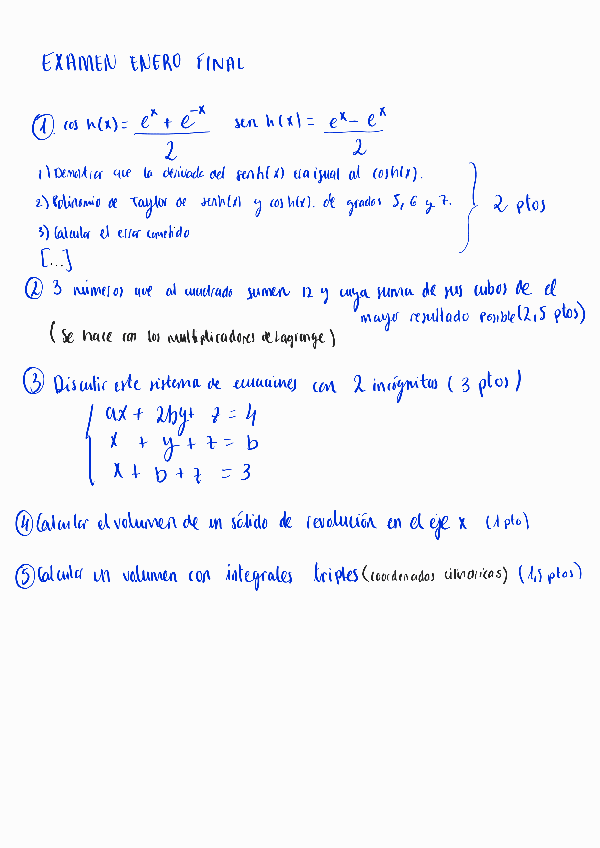 EXAMEN ENERO FINAL
① cos h(x) = (e^x + e^-x)/2 sen h(x) = (e^x - e^x)/2
1) Demostrar que la derivada del senh(x) era igual al cosh(x).
2) Polinomio de Taylor de senh(x) y cosh(x). de grados 5, 6 y 7.
3) Calcular el error cometido
2 ptos
[...]
② 3 números que al cuadrado sumen 12 y cuya suma de sus cubos de el
mayor resultado posible (2,5 ptos)
(Se hace con los multiplicadores de Lagrange)
③ Discutir este sistema de ecuaciones con 2 incógnitas (3 ptos)
ax + 2by + z = 4
x + y + z = b
x + b + z = 3
④ Calcular el volumen de un sólido de revolución en el eje x (1 pto)
⑤ Calcular un volumen con integrales triples (coordenadas cilíndricas) (1,5 ptos)